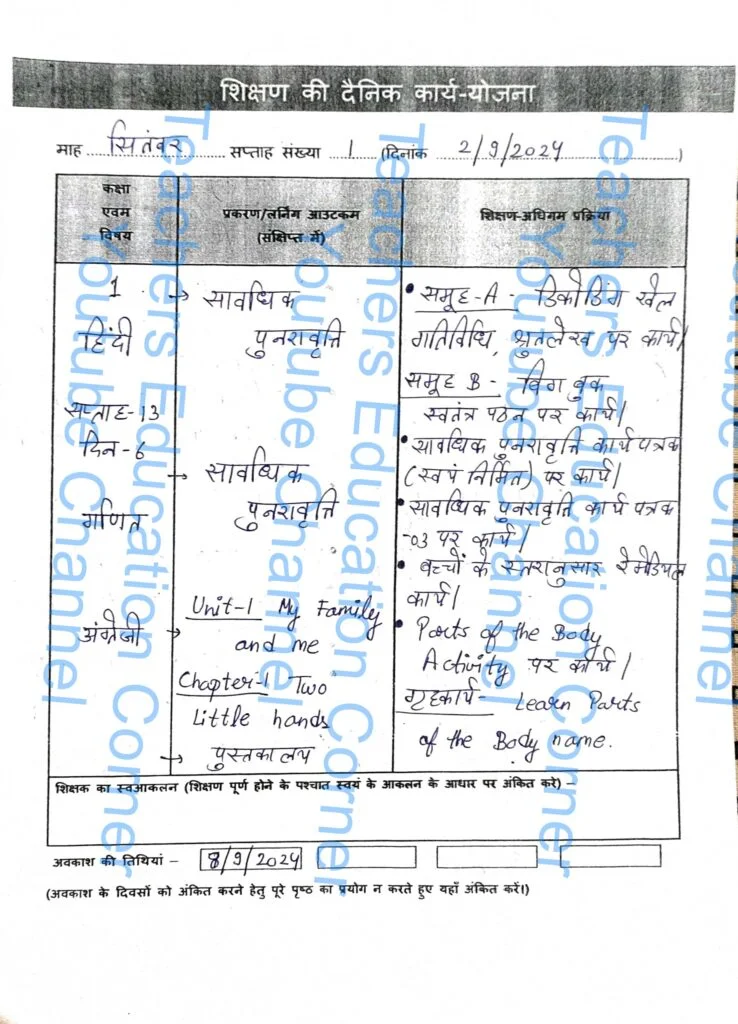 शिक्षण की दैनिक कार्य-योजना
माह सितंबर सप्ताह संख्या 1 (दिनांक 2/9/2024)
कक्षा
एवम
विषय
प्रकरण/लर्निंग आउटकम
(संक्षिप्त में)
शिक्षण-अधिगम प्रक्रिया
1
हिंदी
सप्ताह-13
दिन-6
गणित
अंग्रेजी
→ सावधिक
पुनरावृत्ति
→ सावधिक
पुनरावृत्ति
→ Unit-1 My Family
and me
Chapter-1 Two
Little hands
→ पुस्तकालय
• समूह-A - डिकोडिंग खेल
गतिविधि, श्रुतलेख पर कार्य।
समूह B - बिग बुक
स्वतंत्र पठन पर कार्य।
• सावधिक पुनरावृत्ति कार्य पत्रक
(स्वयं निर्मित) पर कार्य।
• सावधिक पुनरावृत्ति कार्य पत्रक
-03 पर कार्य।
• बच्चों के स्तरानुसार रेमेडियल
कार्य।
• Parts of the Body
Activity पर कार्य।
गृहकार्य- Learn Parts
of the Body name.
शिक्षक का स्वआकलन (शिक्षण पूर्ण होने के पश्चात स्वयं के आकलन के आधार पर अंकित करे) –
अवकाश की तिथियां – 8/9/2024
(अवकाश के दिवसों को अंकित करने हेतु पूरे पृष्ठ का प्रयोग न करते हुए यहाँ अंकित करें।)
Teachers Education Corner
Youtube Channel
Teachers Education Corner
Youtube Channel
Teachers Education Corner
Youtube Channel